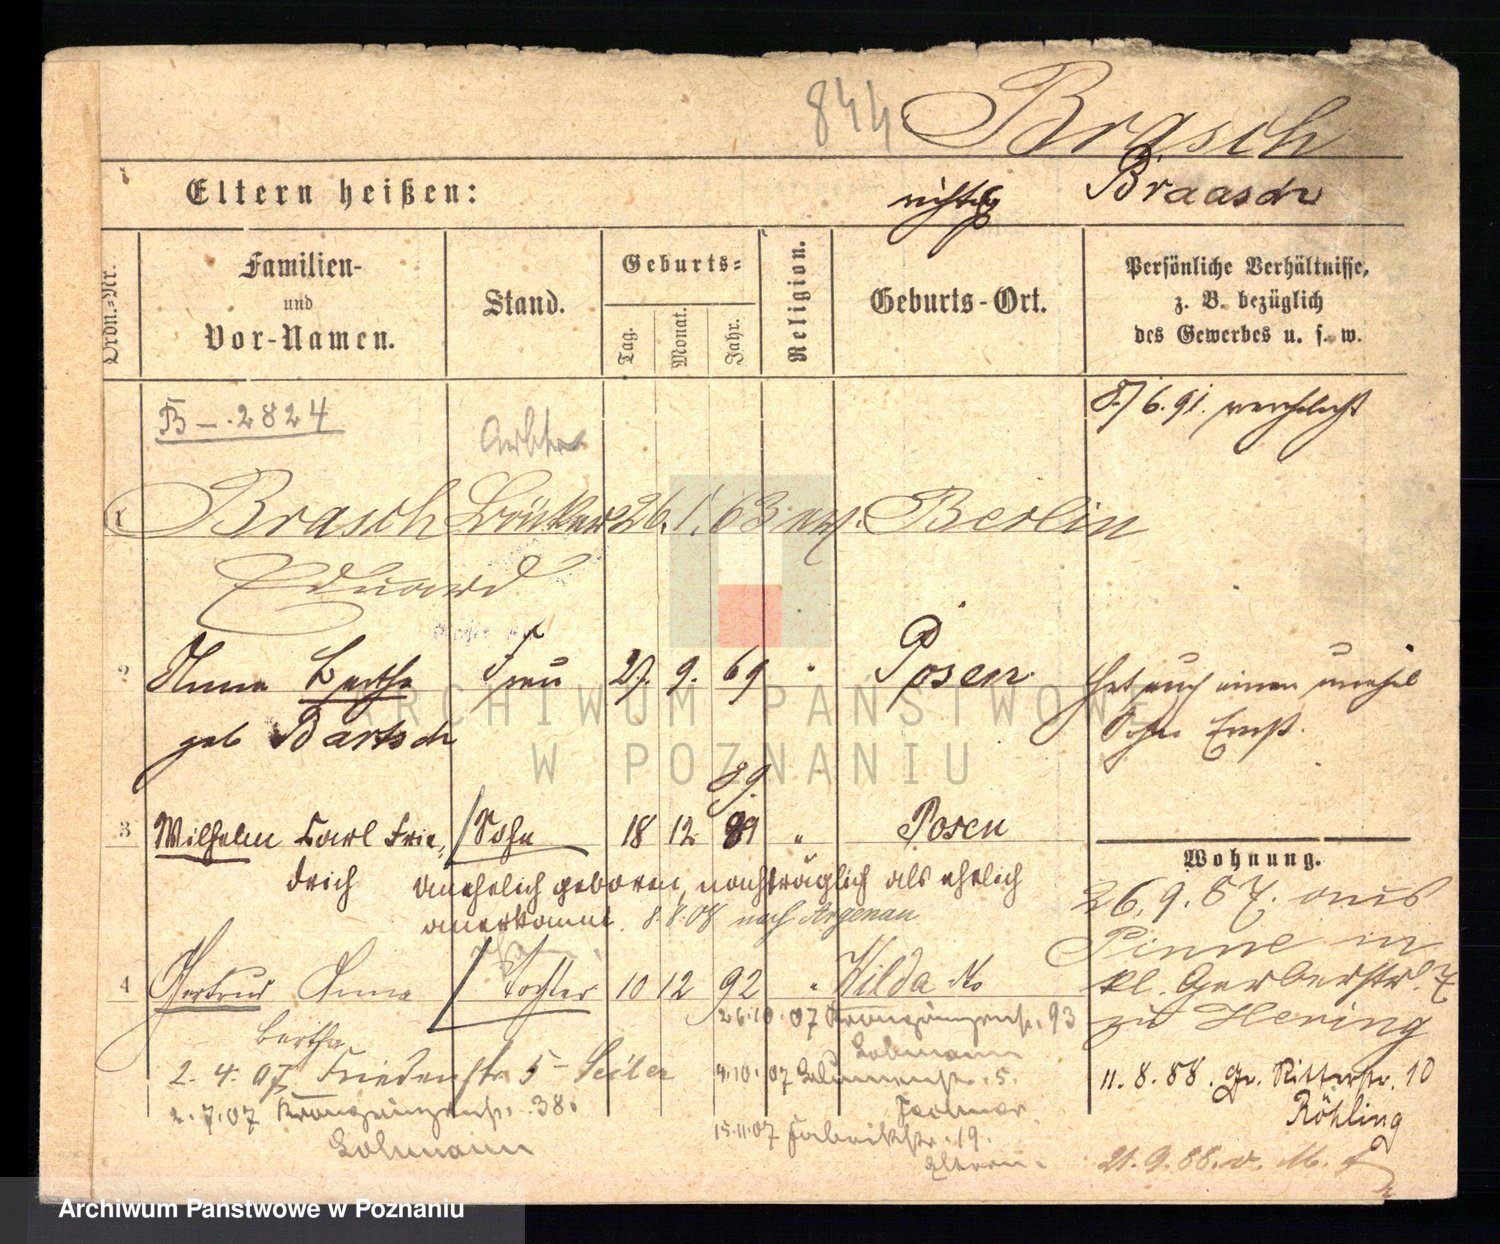 844 Brasch
Eltern heißen: richtig Braasch
Ordn.-Nr.
Familien-
und
Vor-Namen.
Stand.
Geburts-
Tag.
Monat.
Jahr.
Religion.
Geburts-Ort.
Persönliche Verhältnisse,
z. B. bezüglich
des Gewerbes u. s. w.
B-.2824
8./6.91. verehelicht
1 Brasch 26. 1. 63. ev. Berlin
Eduard
2 Anna Bertha Frau 27. 9. 69 " Posen
geb Bartsch
Hat auch einen unehel
Sohn Ernst.
89.
3 Wilhelm Carl Frie- Sohn 18 12 " Posen
drich
unehelich geboren, nachträglich als ehelich
anerkannt. 8.8.08 nach Argenau
4 Gertrud Anna Tochter 10 12 92 " Wilda
Bertha
Wohnung.
26.9.87. aus
Pinne in
kl. Gerberstr. 7
zu Hering
11.8.88. Gr. Ritterstr. 10
Röhling
21.9.88. v. M.
26.10.07 Kronprinzenstr. 93
Lohmann
2.4.07 Friedenstr. 5 Seiler
9.10.07 Blumenstr. 5.
2.7.07 Kronprinzenstr. 38.
Lohmann
15.11.07 Fabrikstr. 19.
Eltern.
ARCHIWUM PAŃSTWOWE
W POZNANIU
Archiwum Państwowe w Poznaniu